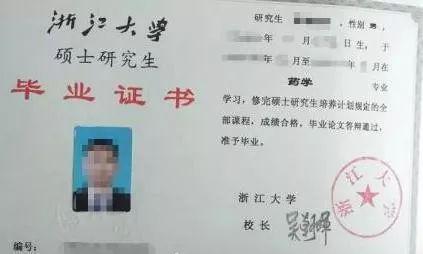 浙江大学
硕士研究生
毕业证书
编号:
研究生 ,性别 男,
年 月 日生,于
年 月 至 年 月在
药学 专业
学习,修完硕士研究生培养计划规定的全
部课程,成绩合格,毕业论文答辩通过,
准予毕业。
浙江大学
校长
浙江大学